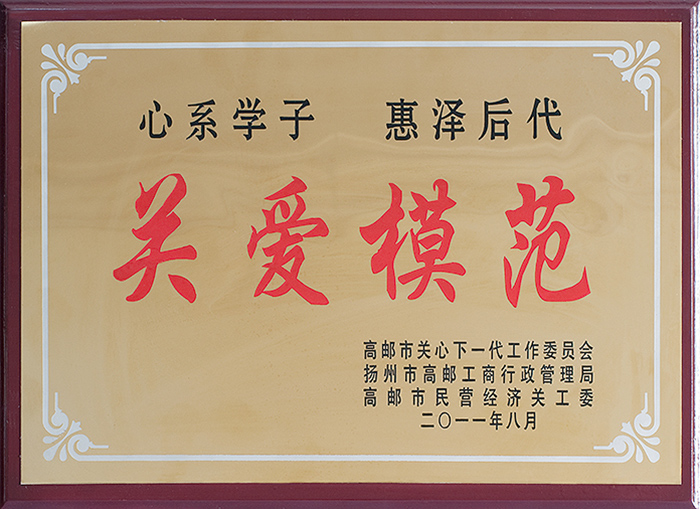 心系学子 惠泽后代
关爱模范
高邮市关心下一代工作委员会
扬州市高邮工商行政管理局
高邮市民营经济关工委
二〇一一年八月